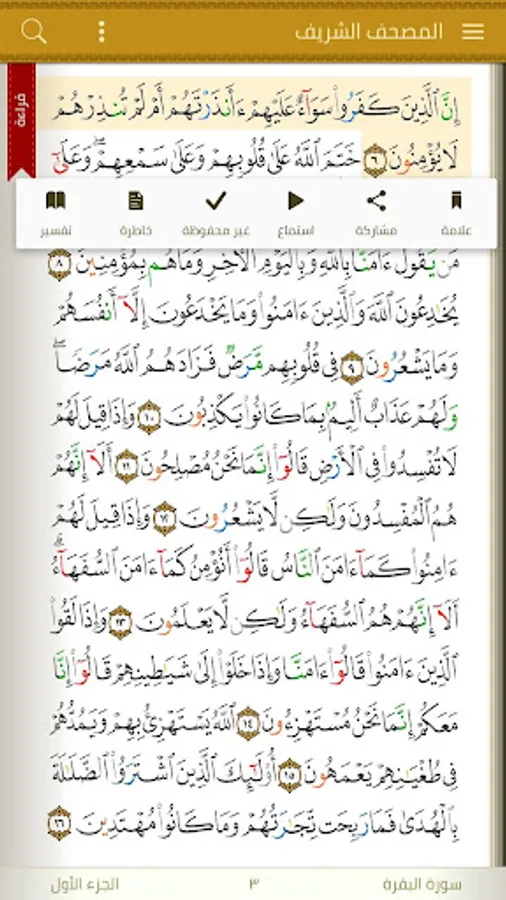 المصحف الشريف
قراءة
إِنَّ ٱلَّذِينَ كَفَرُوا۟ سَوَآءٌ عَلَيْهِمْ ءَأَنذَرْتَهُمْ أَمْ لَمْ تُنذِرْهُمْ
لَا يُؤْمِنُونَ ٦ خَتَمَ ٱللَّهُ عَلَىٰ قُلُوبِهِمْ وَعَلَىٰ سَمْعِهِمْ ۖ وَعَلَىٰٓ
علامة
مشاركة
استماع
غير محفوظة
خاطرة
تفسير
مَن يَقُولُ ءَامَنَّا بِٱللَّهِ وَبِٱلْيَوْمِ ٱلْـَٔاخِرِ وَمَا هُم بِمُؤْمِنِينَ ٨
يُخَـٰدِعُونَ ٱللَّهَ وَٱلَّذِينَ ءَامَنُوا۟ وَمَا يَخْدَعُونَ إِلَّآ أَنفُسَهُمْ
وَمَا يَشْعُرُونَ ٩ فِى قُلُوبِهِم مَّرَضٌ فَزَادَهُمُ ٱللَّهُ مَرَضًا ۖ
وَلَهُمْ عَذَابٌ أَلِيمٌۢ بِمَا كَانُوا۟ يَكْذِبُونَ ١٠ وَإِذَا قِيلَ لَهُمْ
لَا تُفْسِدُوا۟ فِى ٱلْأَرْضِ قَالُوٓا۟ إِنَّمَا نَحْنُ مُصْلِحُونَ ١١ أَلَآ إِنَّهُمْ
هُمُ ٱلْمُفْسِدُونَ وَلَـٰكِن لَّا يَشْعُرُونَ ١٢ وَإِذَا قِيلَ لَهُمْ
ءَامِنُوا۟ كَمَآ ءَامَنَ ٱلنَّاسُ قَالُوٓا۟ أَنُؤْمِنُ كَمَآ ءَامَنَ ٱلسُّفَهَآءُ ۗ
أَلَآ إِنَّهُمْ هُمُ ٱلسُّفَهَآءُ وَلَـٰكِن لَّا يَعْلَمُونَ ١٣ وَإِذَا لَقُوا۟
ٱلَّذِينَ ءَامَنُوا۟ قَالُوٓا۟ ءَامَنَّا وَإِذَا خَلَوْا۟ إِلَىٰ شَيَـٰطِينِهِمْ قَالُوٓا۟ إِنَّا
مَعَكُمْ إِنَّمَا نَحْنُ مُسْتَهْزِءُونَ ١٤ ٱللَّهُ يَسْتَهْزِئُ بِهِمْ وَيَمُدُّهُمْ
فِى طُغْيَـٰنِهِمْ يَعْمَهُونَ ١٥ أُو۟لَـٰٓئِكَ ٱلَّذِينَ ٱشْتَرَوُا۟ ٱلضَّلَـٰلَةَ
بِٱلْهُدَىٰ فَمَا رَبِحَت تِّجَـٰرَتُهُمْ وَمَا كَانُوا۟ مُهْتَدِينَ ١٦
سورة البقرة
٣
الجزء الأول